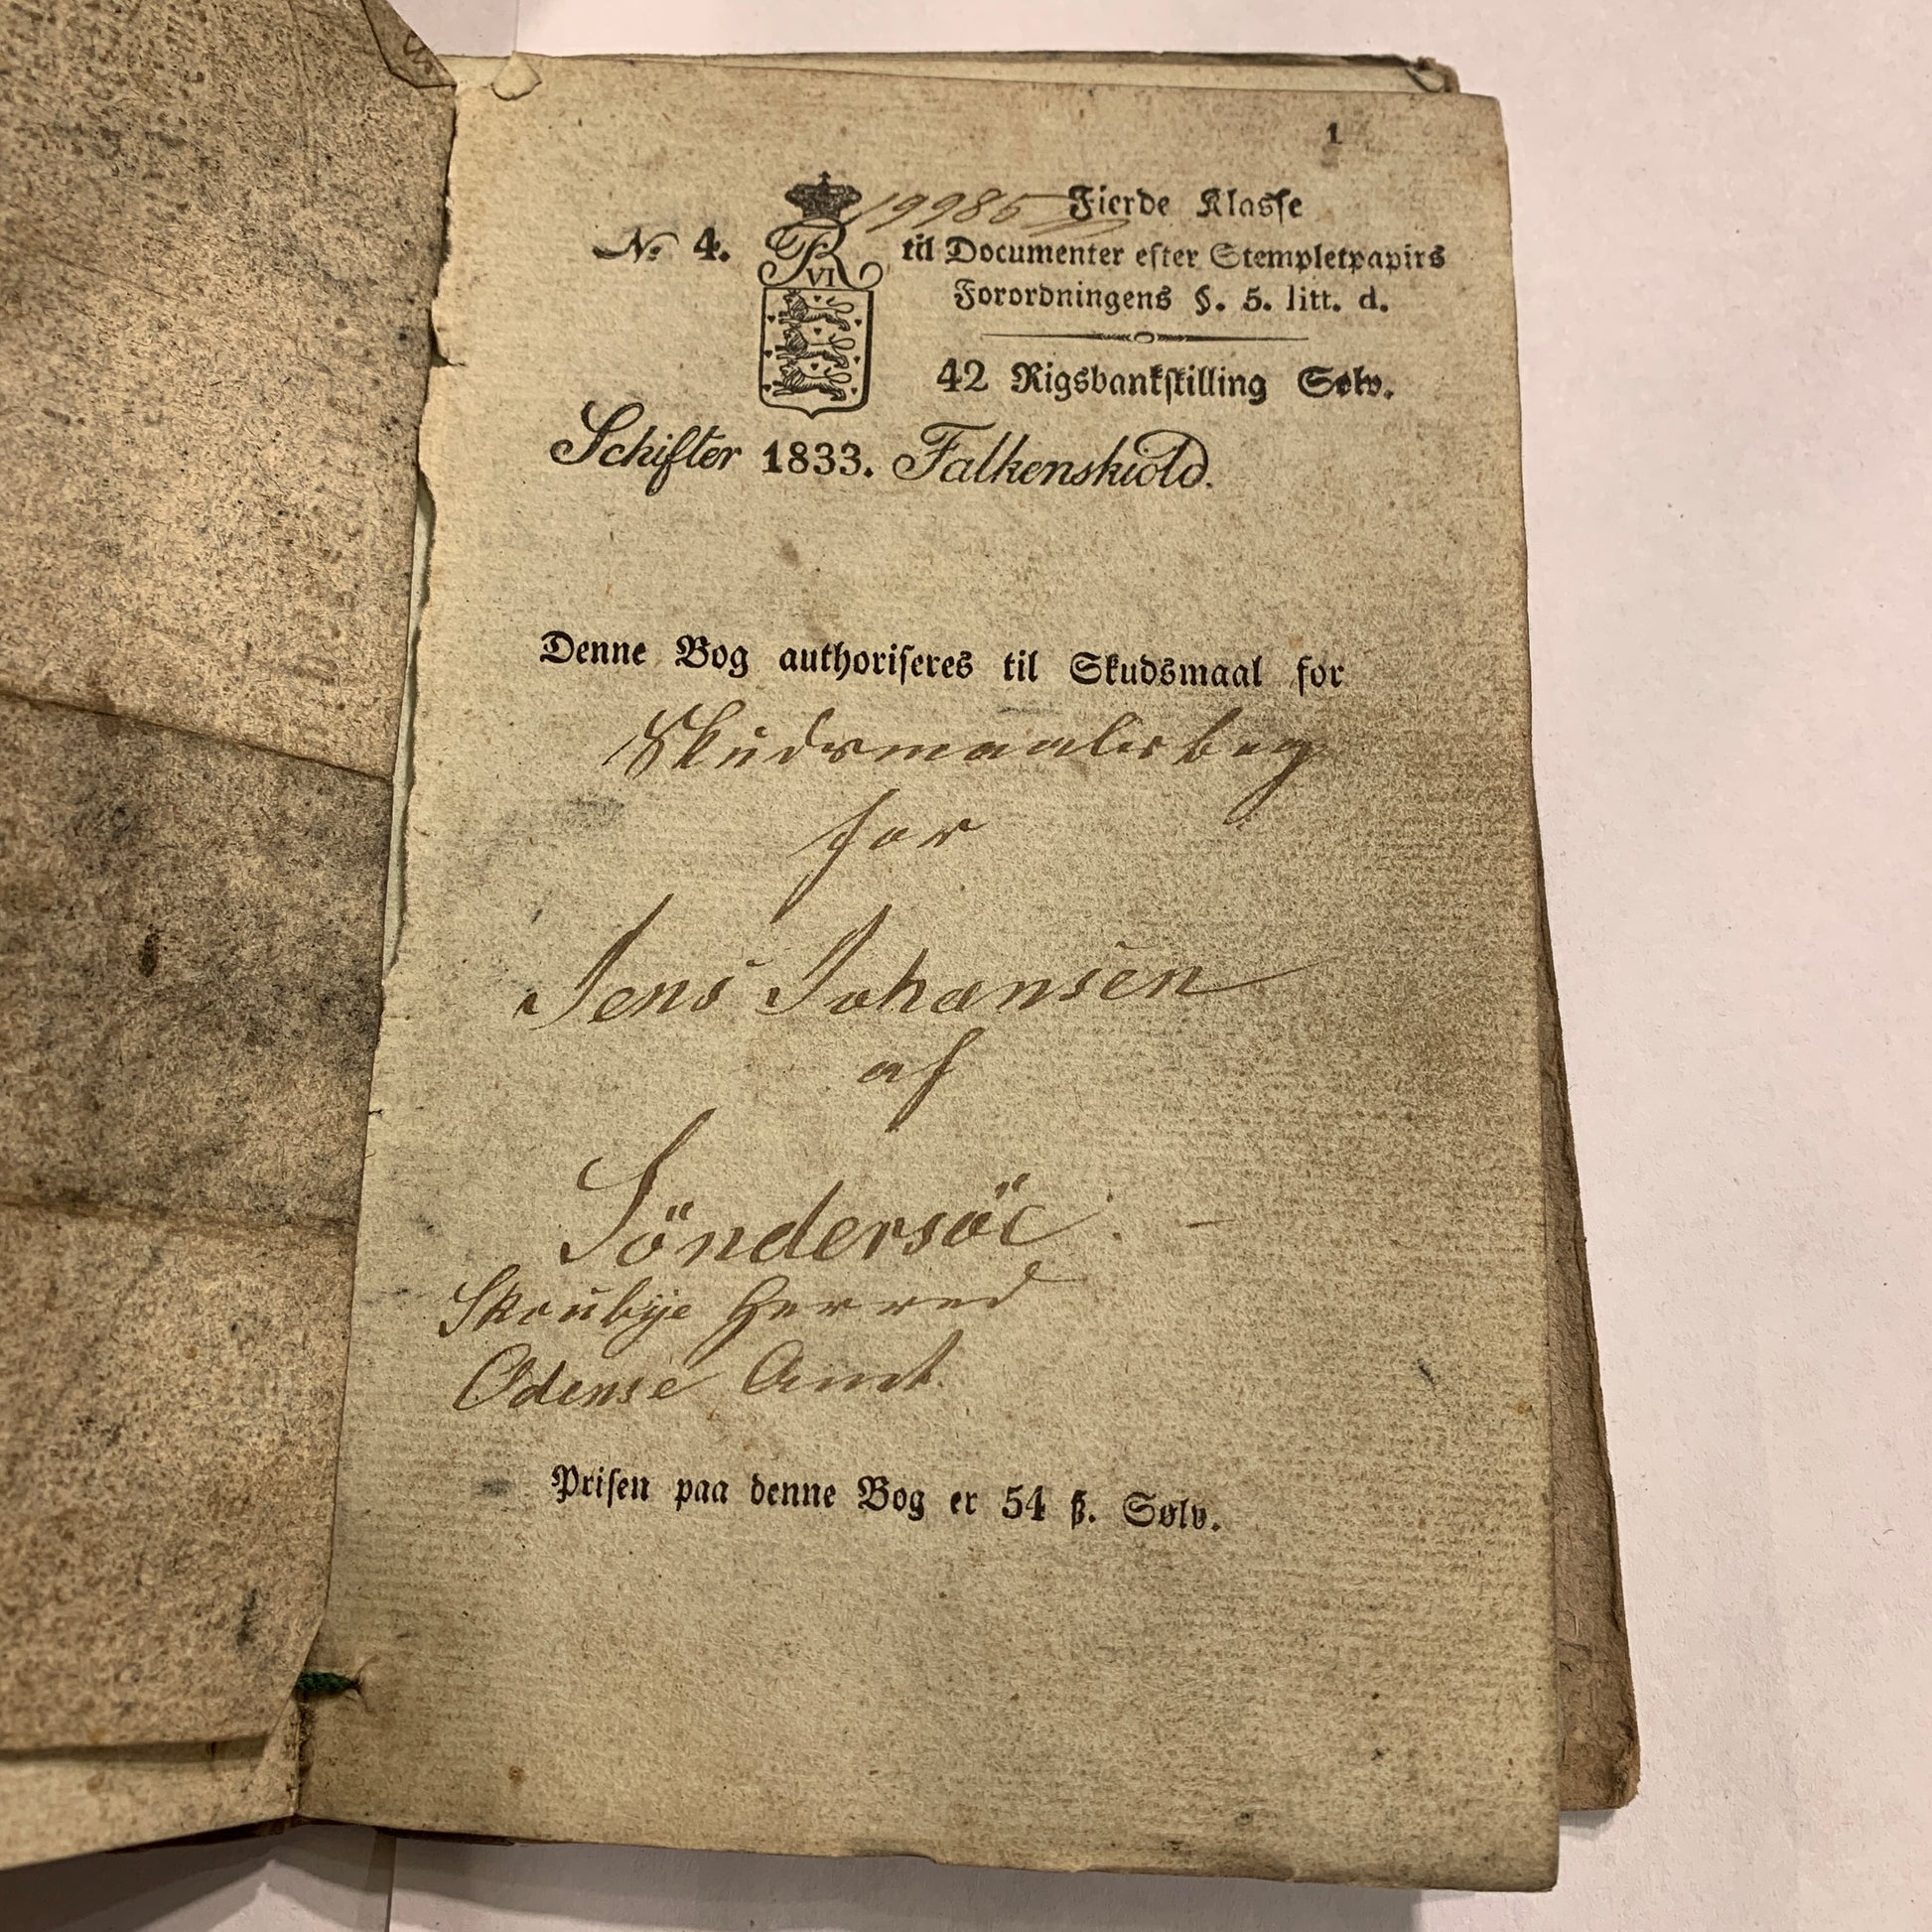 1
19985
№ 4.
FR VI
Fierde Klasse
til Documenter efter Stempletpapirs
Forordningens §. 5. litt. d.
42 Rigsbankskilling Sølv.
Schifter 1833. Falkenskiold.
Denne Bog authoriseres til Skudsmaal for
Skudsmaalsbog
for
Jens Johansen
af
Söndersöe. –
Skoubÿe Herred
Odense Amt.
Prisen paa denne Bog er 54 ß. Sølv.